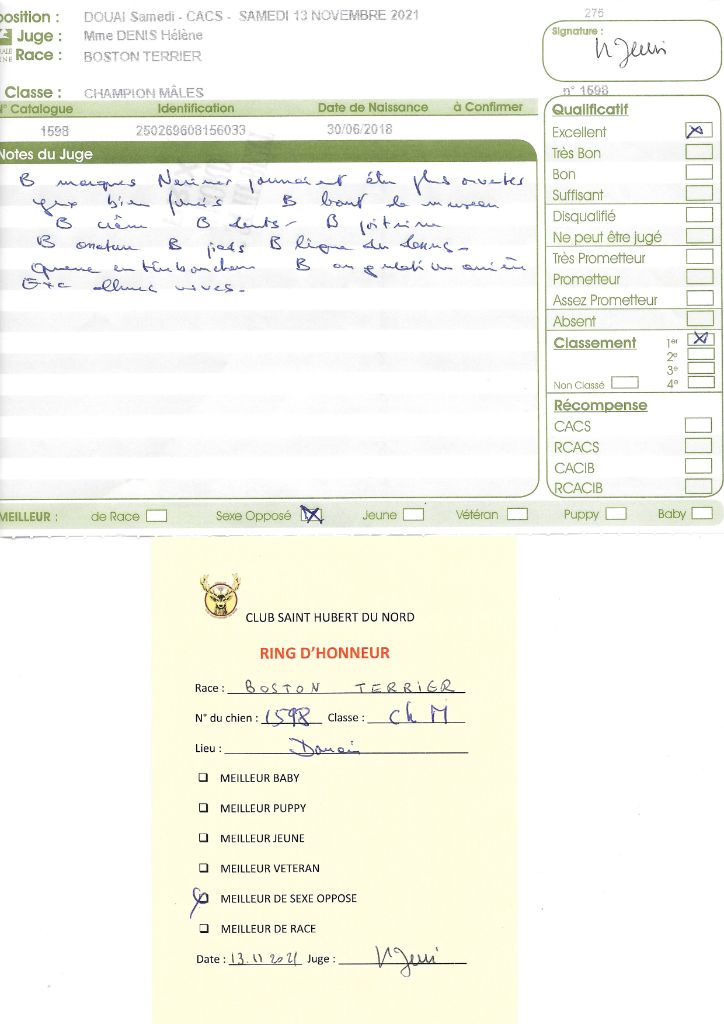 position : DOUAI Samedi - CACS - SAMEDI 13 NOVEMBRE 2021
275
Juge : Mme DENIS Hélène
Signature :
Race : BOSTON TERRIER
Classe : CHAMPION MÂLES
n° 1598
N° Catalogue Identification Date de Naissance à Confirmer
1598 250269608156033 30/06/2018
Notes du Juge
B marques pourraient être plus ouvertes
yeux bien B bout de museau
B crâne B dents - B poitrine
B ossature B pieds B ligne du dessus -
Queue en tirebouchon B angulation arrière
Exc allures vives -
Qualificatif
Excellent
Très Bon
Bon
Suffisant
Disqualifié
Ne peut être jugé
Très Prometteur
Prometteur
Assez Prometteur
Absent
Classement 1er
2e
3e
Non Classé 4e
Récompense
CACS
RCACS
CACIB
RCACIB
MEILLEUR : de Race Sexe Opposé Jeune Vétéran Puppy Baby
CLUB SAINT HUBERT DU NORD
RING D'HONNEUR
Race : BOSTON TERRIER
N° du chien : 1598 Classe : Ch M
Lieu : Douai
MEILLEUR BABY
MEILLEUR PUPPY
MEILLEUR JEUNE
MEILLEUR VETERAN
MEILLEUR DE SEXE OPPOSE
MEILLEUR DE RACE
Date : 13.11.2021 Juge :